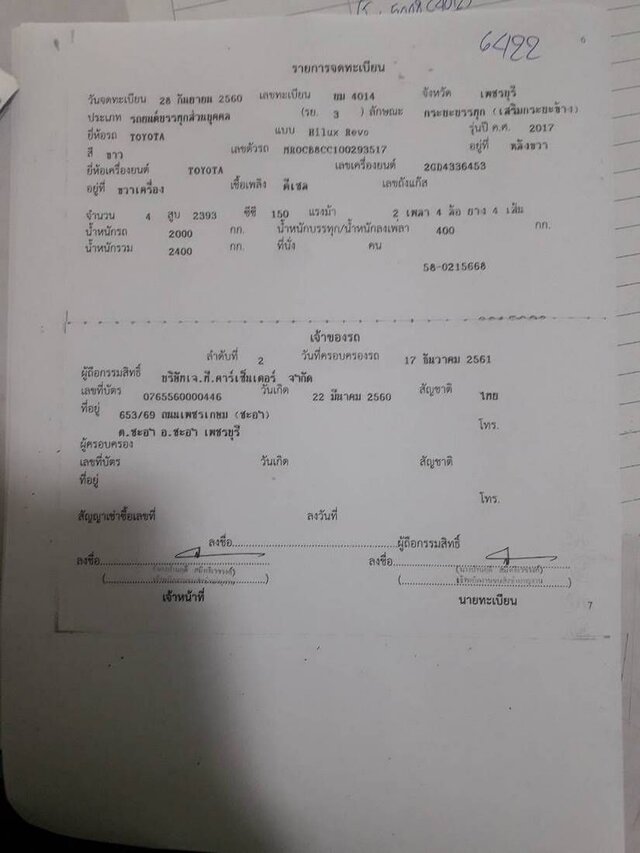 6422
6
รายการจดทะเบียน
วันจดทะเบียน 28 กันยายน 2560 เลขทะเบียน ยม 4014 จังหวัด เพชรบุรี
ประเภท รถยนต์บรรทุกส่วนบุคคล (รย. 3 ) ลักษณะ กระบะบรรทุก (เสริมกระบะข้าง)
ยี่ห้อรถ TOYOTA แบบ Hilux Revo รุ่นปี ค.ศ. 2017
สี ขาว เลขตัวรถ MR0CB8CC100293517 อยู่ที่ หลังขวา
ยี่ห้อเครื่องยนต์ TOYOTA เลขเครื่องยนต์ 2GD4336453
อยู่ที่ ขวาเครื่อง เชื้อเพลิง ดีเซล เลขถังแก๊ส
จำนวน 4 สูบ 2393 ซีซี 150 แรงม้า 2 เพลา 4 ล้อ ยาง 4 เส้น
น้ำหนักรถ 2000 กก. น้ำหนักบรรทุก/น้ำหนักลงเพลา 400 กก.
น้ำหนักรวม 2400 กก. ที่นั่ง คน
58-0215668
เจ้าของรถ
ลำดับที่ 2 วันที่ครอบครองรถ 17 ธันวาคม 2561
ผู้ถือกรรมสิทธิ์ บริษัทเจ.ที.คาร์เซ็นเตอร์ จำกัด
เลขที่บัตร 0765560000446 วันเกิด 22 มีนาคม 2560 สัญชาติ ไทย
ที่อยู่ 653/69 ถนนเพชรเกษม (ชะอำ) โทร.
ต.ชะอำ อ.ชะอำ เพชรบุรี
ผู้ครอบครอง
เลขที่บัตร วันเกิด สัญชาติ
ที่อยู่
โทร.
สัญญาเช่าซื้อเลขที่ ลงวันที่
ลงชื่อ ผู้ถือกรรมสิทธิ์
ลงชื่อ ลงชื่อ
เจ้าหน้าที่ นายทะเบียน
7